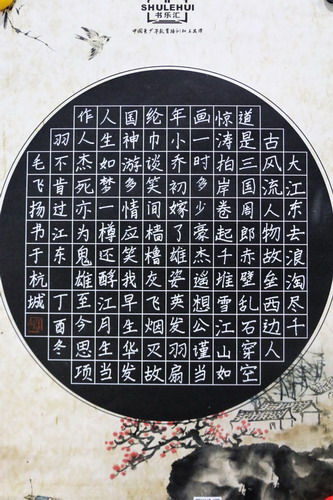 SHULEHUI
书乐汇
大江东去浪淘尽千
古风流人物故垒西边人
道是三国周郎赤壁乱石穿空
惊涛拍岸卷起千堆雪江山如
画一时多少豪杰遥想公谨当
年小乔初嫁了雄姿英发羽扇
纶巾谈笑间樯橹灰飞烟灭故
国神游多情应笑我早生华发
人生如梦一樽还酹江月生当
作人杰死亦为鬼雄至今思项
羽不肯过江东 丁酉冬
毛飞扬书于杭城